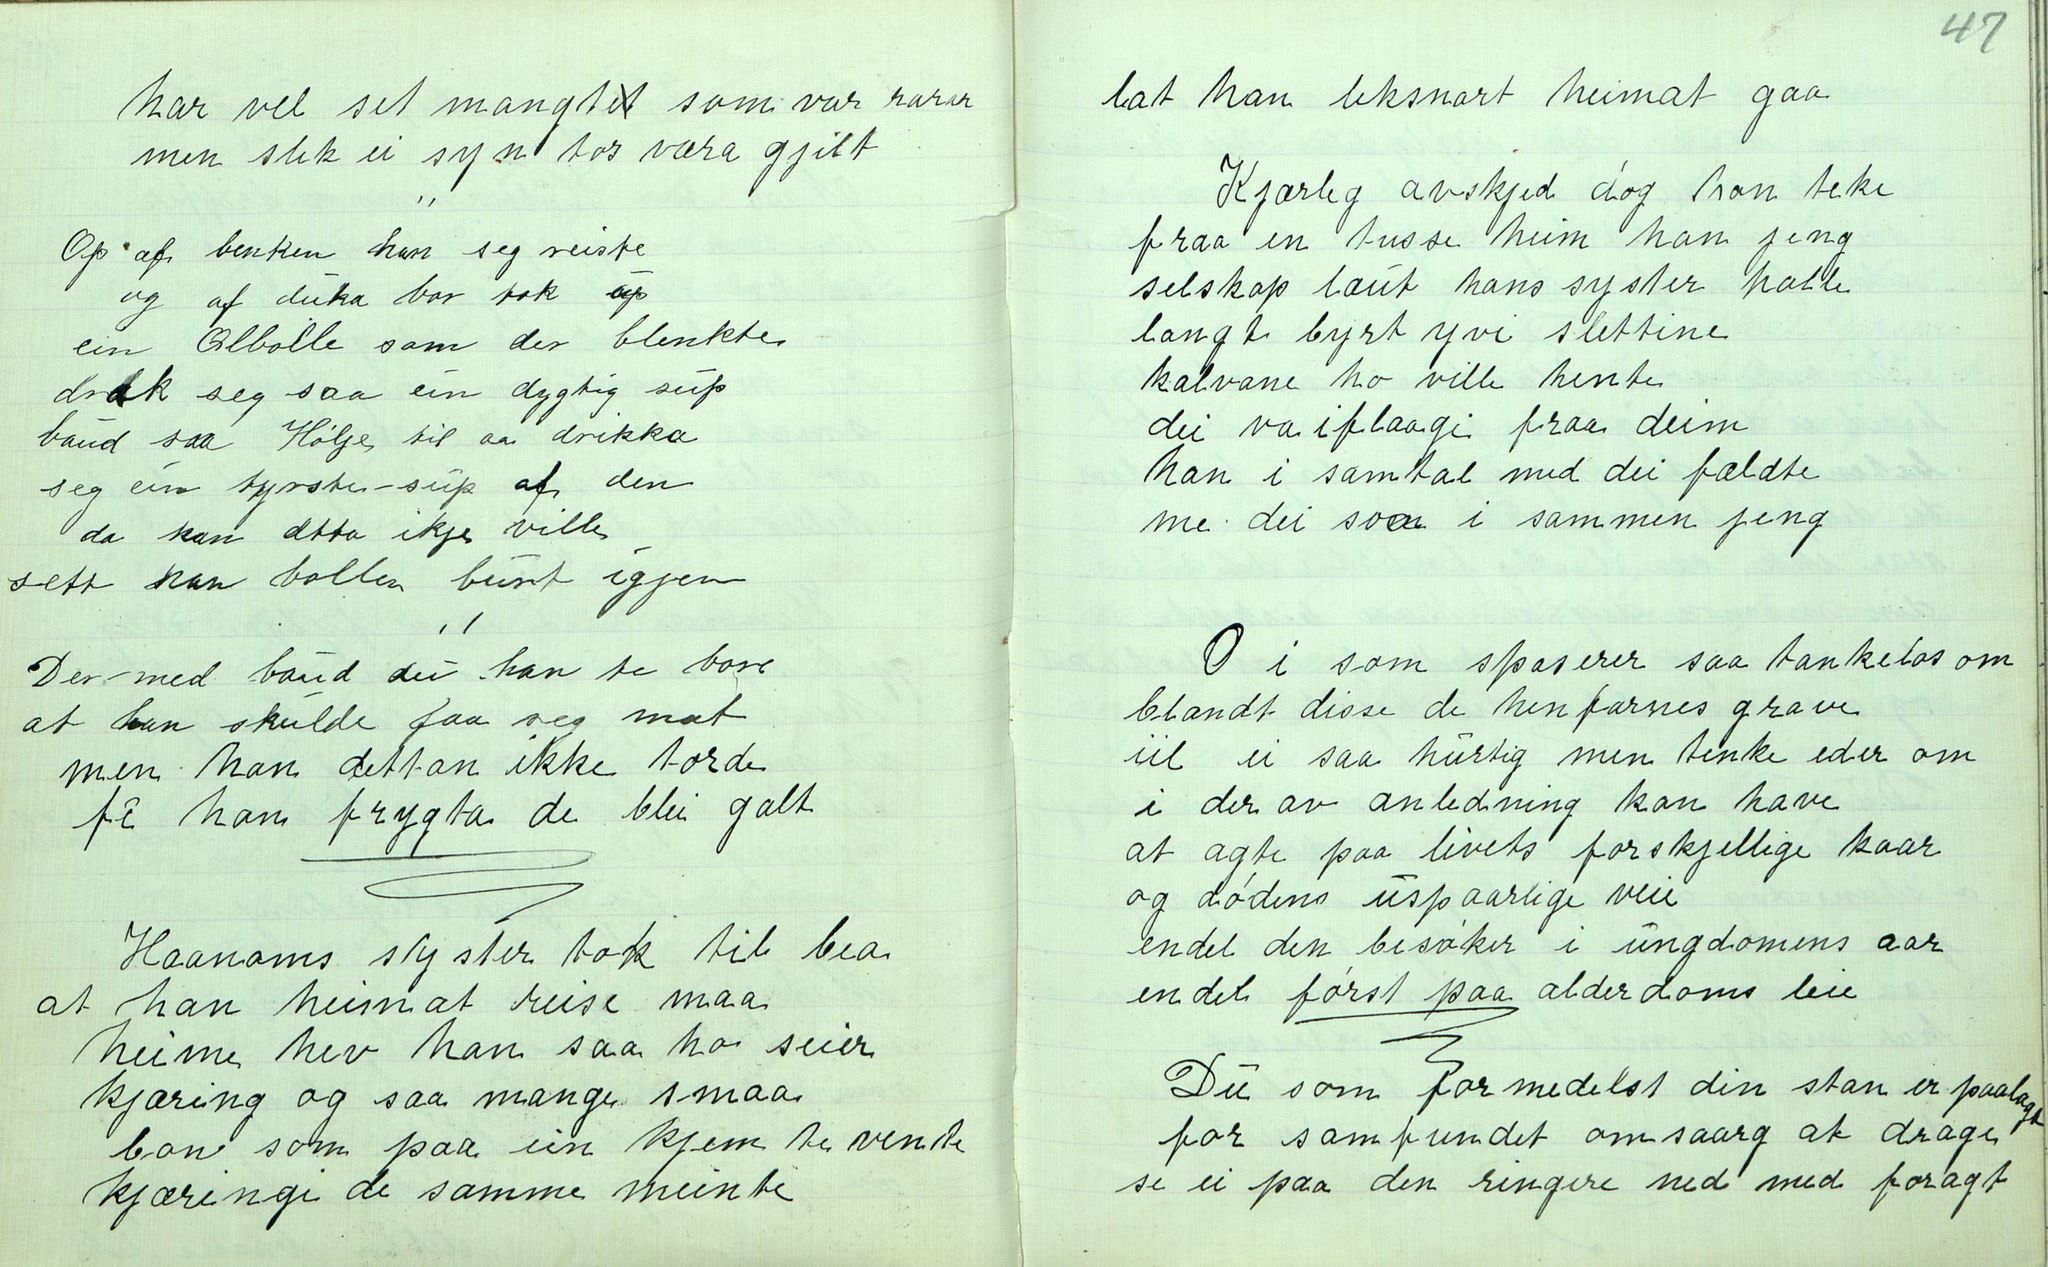 har vel set mangt som var rarar
men slek ei syn tor væra gjilt
"
Op af benken han seg reiste
og af duka bor tok up
ein Ølbolle som der blenkte
drak seg saa ein dygtig sup
baud saa Hølje til aa drikka
seg ein tyrste-sup af den
da han detta ikje ville
sett han bollen burt igjen
"
Der-med baud dei han te bore
at han skulde faa seg mat
men han dettan ikke torde
fê han frygta de blei galt
Haanoms syster tok til bea
at han heimat reise maa
heime hev han saa ho seier
kjæring og saa mange smaa
bon som paa ein kjem te vente
kjæringi de samme meinte
47
lat han leksnart heimat gaa
Kjærleg avskjed dog han teke
fraa en tusse heim han jeng
selskap laut hans syster halle
langt byrt yvi slettine
kalvane ho ville hente
dei va iflaagi fraa deim
han i samtal med dei fældte
me dei saa i sammen jeng
O i som spaserer saa tankeløs om
blandt disse de henfarnes grave
iil ei saa hurtig men tenke eder om
i der av anledning kan have
at agte paa livets forskjellige kaar
og dødens uspaarlige veie
endel den besøker i ungdomens aar
endel først paa alderdoms leie
Du som formedelst din stan er paalagt
for samfundet omsaarg at drage
se ei paa den ringere ned med foragt